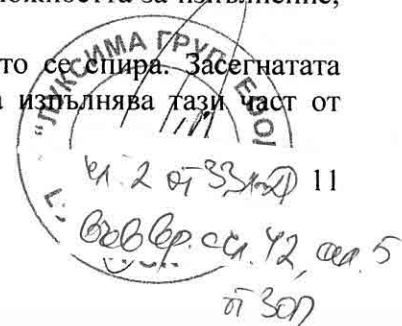 ожността за изпълнение,
то се спира. Засегнатата
а изпълнява тази част от
"ЛУКСИМА ГРУП" ЕООД
чл. 2 от ЗЗЛД 11
във вр. с чл. 42, ал. 5
от ЗОП